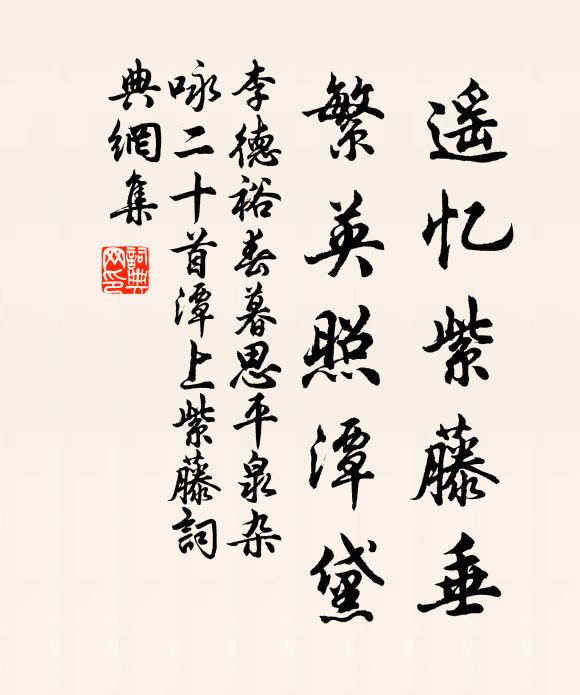 遥忆紫藤垂
繁英照潭黛
李德裕春暮思平泉杂
咏二十首潭上紫藤詞
典網集
詞典网印